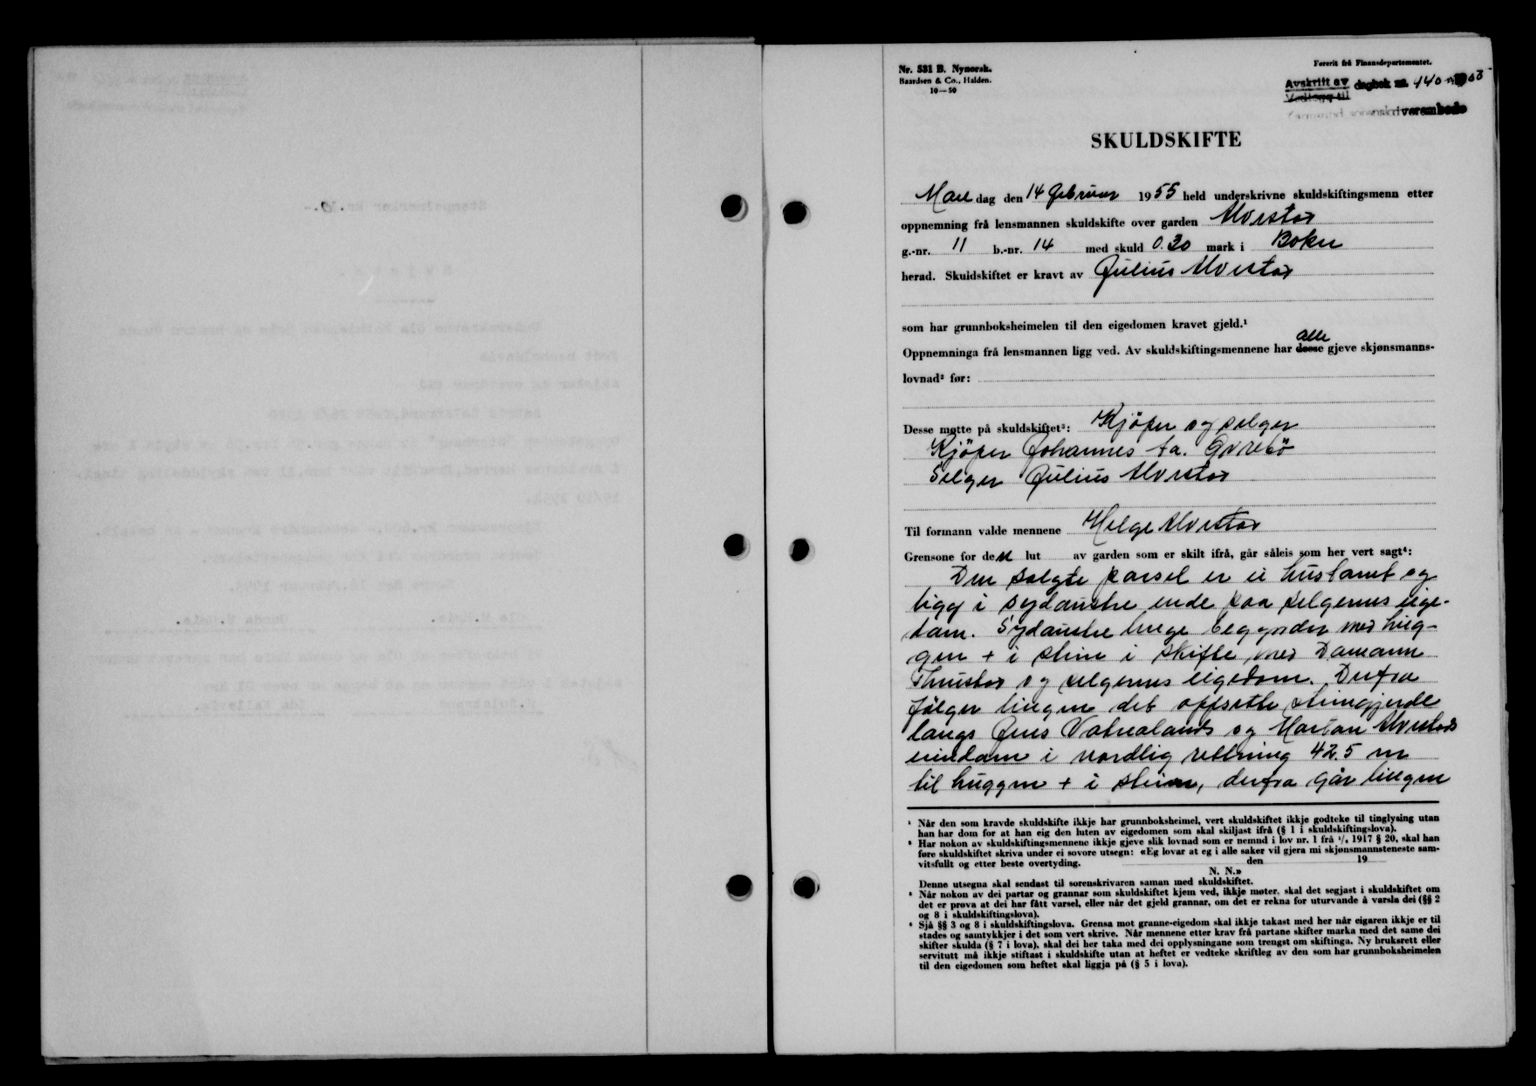 Nr. 531 B. Nynorsk.
Baardsen & Co., Halden.
10—50
Førerit frå Finansdepartementet.
Avskrift av dagbok nr. 440
Vedlegg til
sorenskriverembede
SKULDSKIFTE
Mandag den 14 februar 1955 held underskrivne skuldskiftingsmenn etter
oppnemning frå lensmannen skuldskifte over garden Alvestad
g.-nr. 11 b.-nr. 14 med skuld 0.20 mark i Bokn
herad. Skuldskiftet er kravt av Julius Alvestad
som har grunnboksheimelen til den eigedomen kravet gjeld.¹
alle
Oppnemninga frå lensmannen ligg ved. Av skuldskiftingsmennene har desse gjeve skjønsmanns-
lovnad² før:
Desse møtte på skuldskiftet³: Kjöper og selger
Kjöper Johannes
Selger Julius Alvestad
Til formann valde mennene Helge Alvestad
Grensone for den lut av garden som er skilt ifrå, går såleis som her vert sagt⁴:
Den solgte parsel er ei hustomt og
ligg i sydaustre ende paa selgerens eige-
dom. Sydaustre linge begynder med hug-
gen + i stein i skifte med
og selgerens eigedom. Derfra
følger lingen det opsette steingjerde
langs Jens Vatnalands og Martan Alvestads
eiendom i nordlig rettning 42.5 m
til huggen + i stein, derfra går lingen
¹ Når den som kravde skuldskifte ikkje har grunnboksheimel, vert skuldskiftet ikkje godteke til tinglysing utan
han har dom for at han eig den luten av eigedomen som skal skiljast ifrå (§ 1 i skuldskiftingslova).
² Har nokon av skuldskiftingsmennene ikkje gjeve slik lovnad som er nemnd i lov nr. 1 frå ¹/₆ 1917 § 20, skal han
føre skuldskiftet skriva under ei sovore utsegn: «Eg lovar at eg i alle saker vil gjera mi skjønsmannsteneste sam-
vitsfullt og etter beste overtyding. den 19
N. N.»
Denne utsegna skal sendast til sorenskrivaren saman med skuldskiftet.
³ Når nokon av dei partar og grannar som skuldskiftet kjem ved, ikkje møter, skal det segjast i skuldskiftet om
det er prova at dei har fått varsel, eller når det gjeld grannar, om det er rekna for uturvande å varsla dei (§§ 2
og 8 i skuldskiftingslova).
⁴ Sjå §§ 3 og 8 i skuldskiftingslova. Grensa mot granne-eigedom skal ikkje takast med her når eigaren ikkje er til
stades og samtykkjer i det som vert skrive. Når mennene etter krav frå partane skifter marka med det same dei
skifter skulda (§ 7 i lova), skal dei her taka med dei opplysningane som trengst om skiftinga. Ny bruksrett eller
servitutt må ikkje stiftast i skuldskifte utan at heftet er vedteke skriftleg av den som har grunnboksheimelen
til den eigedomen som heftet skal liggja på (§ 5 i lova).